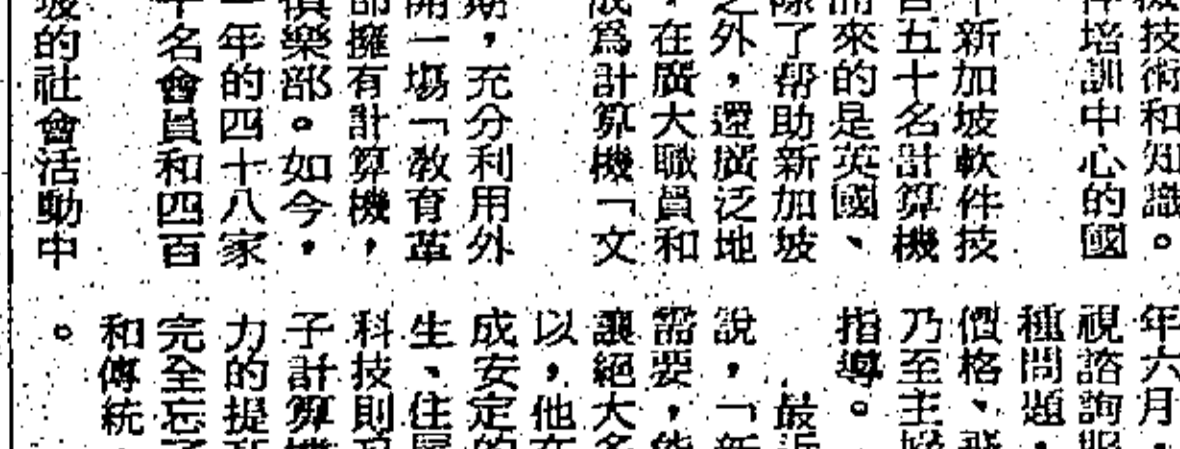 技術和知識。
培訓中心的國
新加坡軟件技
五十名計算機
來的是英國、
了帮助新加坡
外，還廣泛地
，在廣大職員和
爲計算機「文
，充分利用外
開一場「教育革
擁有計算機，
樂部。如今，
年的四十八家
名會員和四百
的社會活動中
年六月，
視諮詢
種問題，
價格、
乃至主
指導。
最
說，「
需要，
讓絕大
以，他
成安定的
生、住
科技則
子計算
力的提
完全忘
和傳統
。